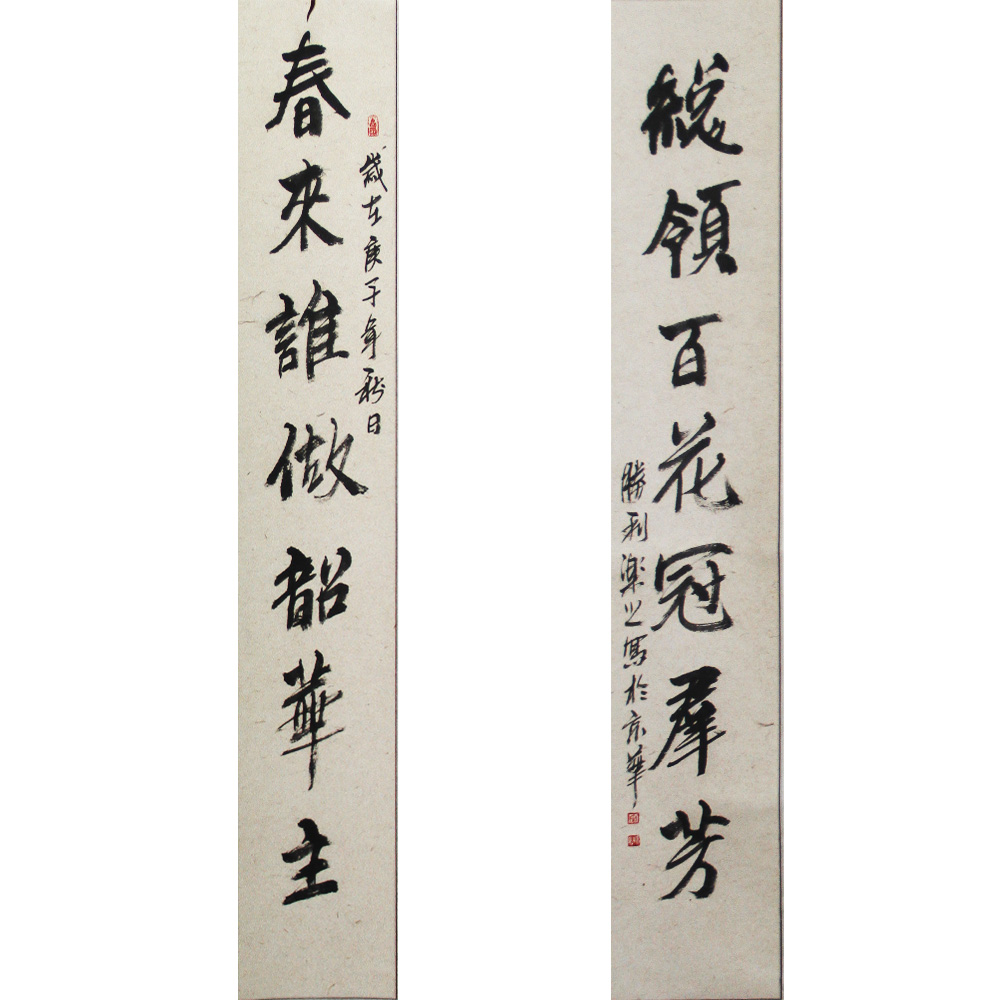 春來誰做韶華主
歲在庚子年秋日
總領百花冠羣芳
勝利樂之寫於京華